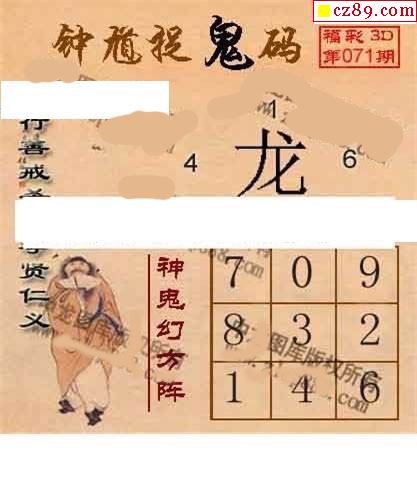 cz89.com
钟馗捉鬼码
福彩3D
第071期
行善戒
贤仁义
1
4 龙 6
神鬼幻方阵
7 0 9
8 3 2
1 4 6
图库版权所有